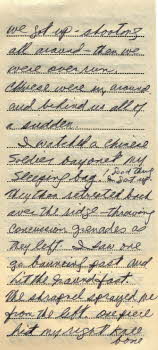 we got up - shooting
all around - then we
were over run.
Chinese were in, around
and behind us all of
a sudden.
I watched a Chinese
soldier bayonet my
sleeping bag! Good thing
I got up.
They then retreated back
over the ridge - throwing
concussion grenades as
they left. I saw one
go bouncing past and
hit the ground fast.
The shrapnel sprayed me
from the left. One piece
hit my right knee
bone